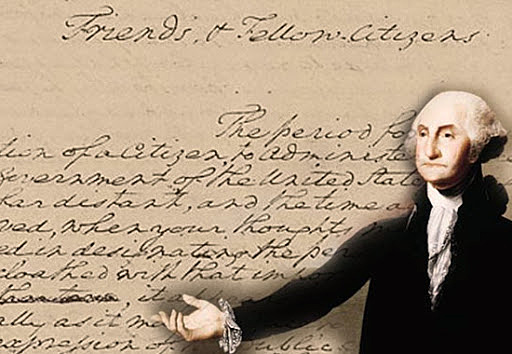 Friends, & Fellow-Citizens
The period fo
tion of a Citizen, to Administe
overnment of the United Stat
distant, and the time a
ved, when your thoughts
ed in designating the pe
cloathed with that impor
it ap
ally as it m
expression of the public